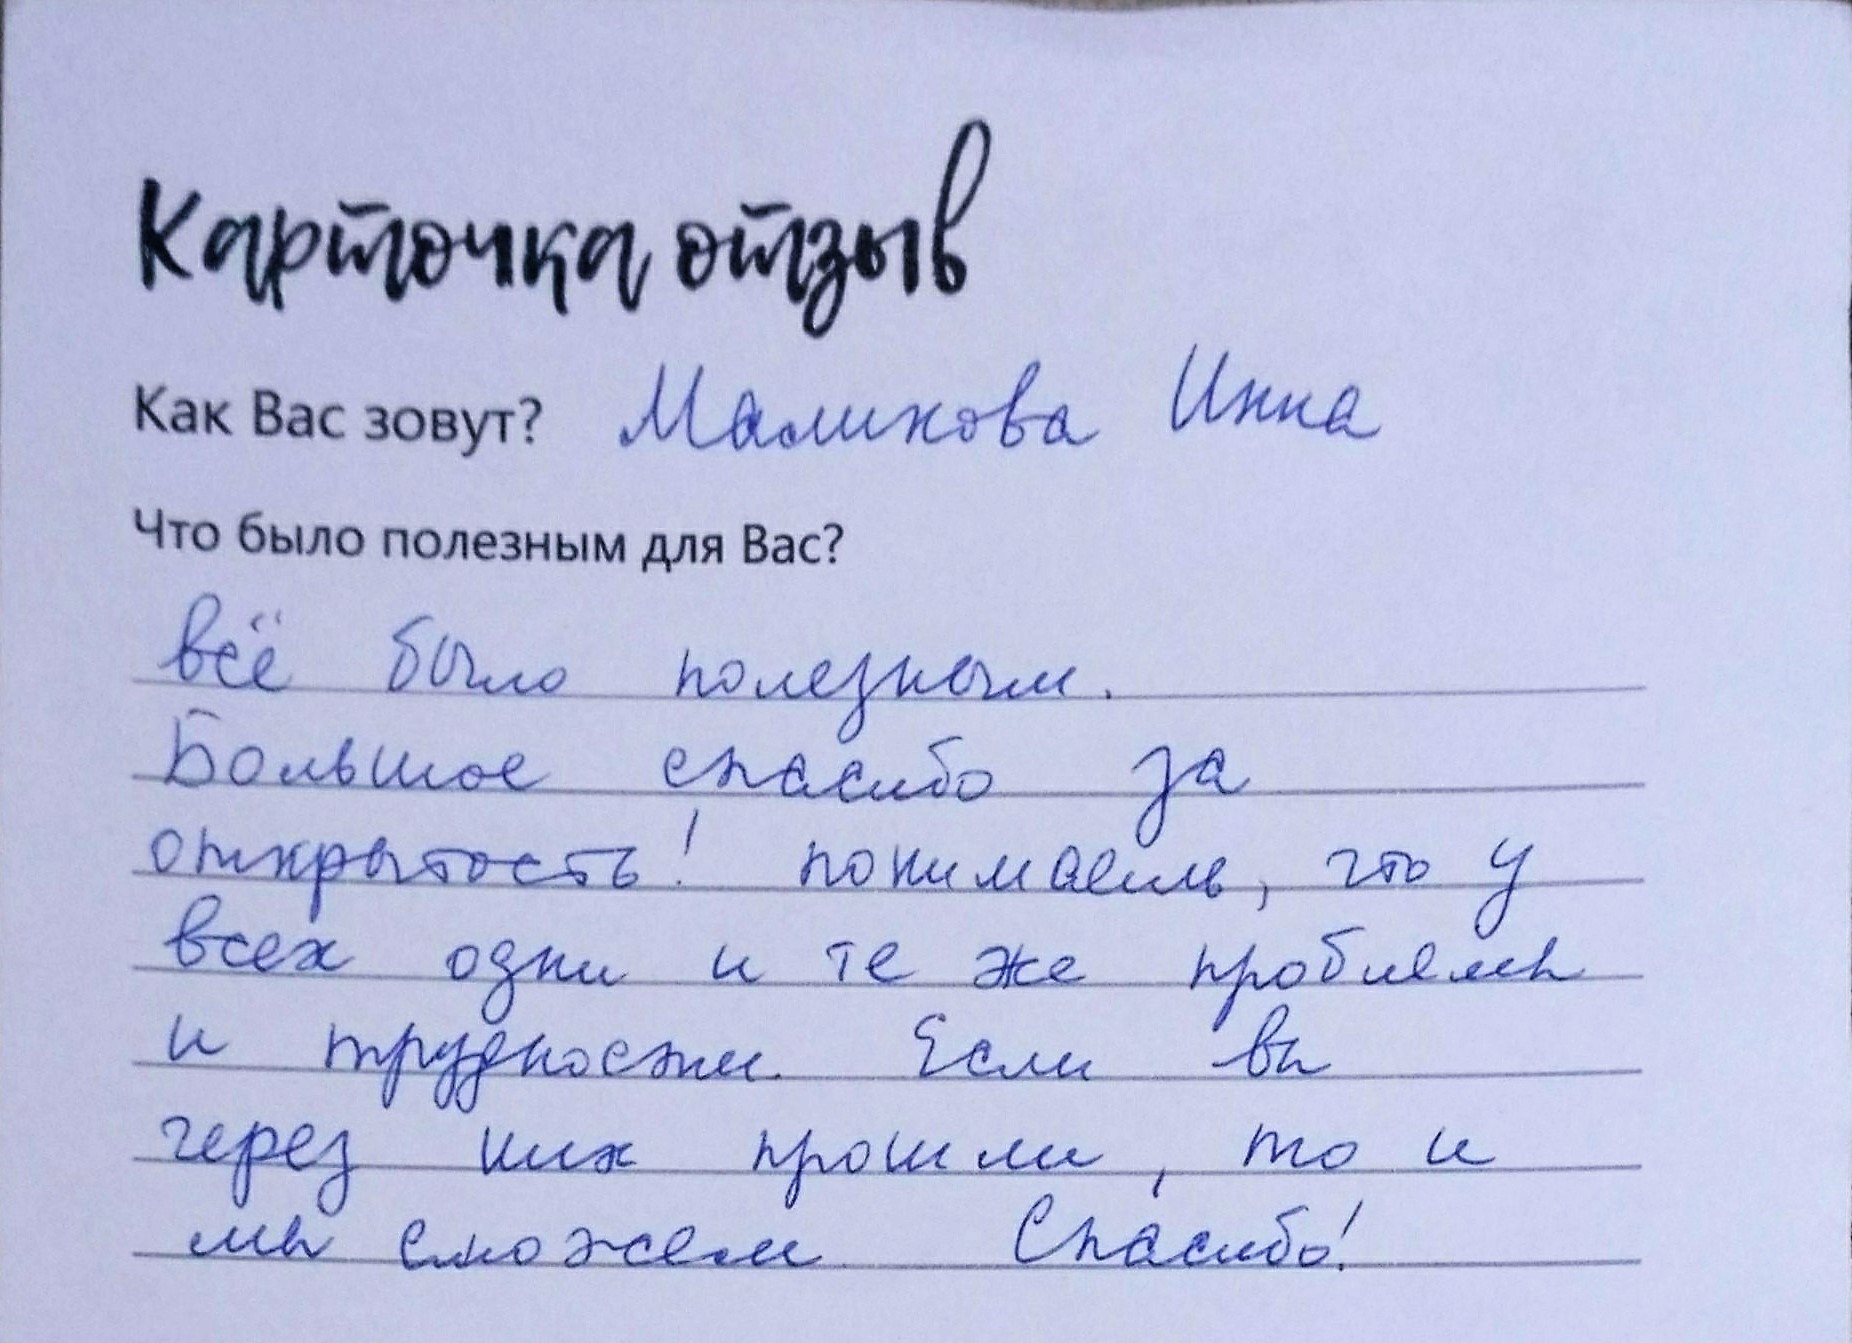 Карточка отзыв
Как Вас зовут? Маликова Инна
Что было полезным для Вас?
всё было полезным.
Большое спасибо за
открытость! понимаешь, что у
всех одни и те же проблемы
и трудности. Если вы
через них прошли, то и
мы сможем Спасибо!